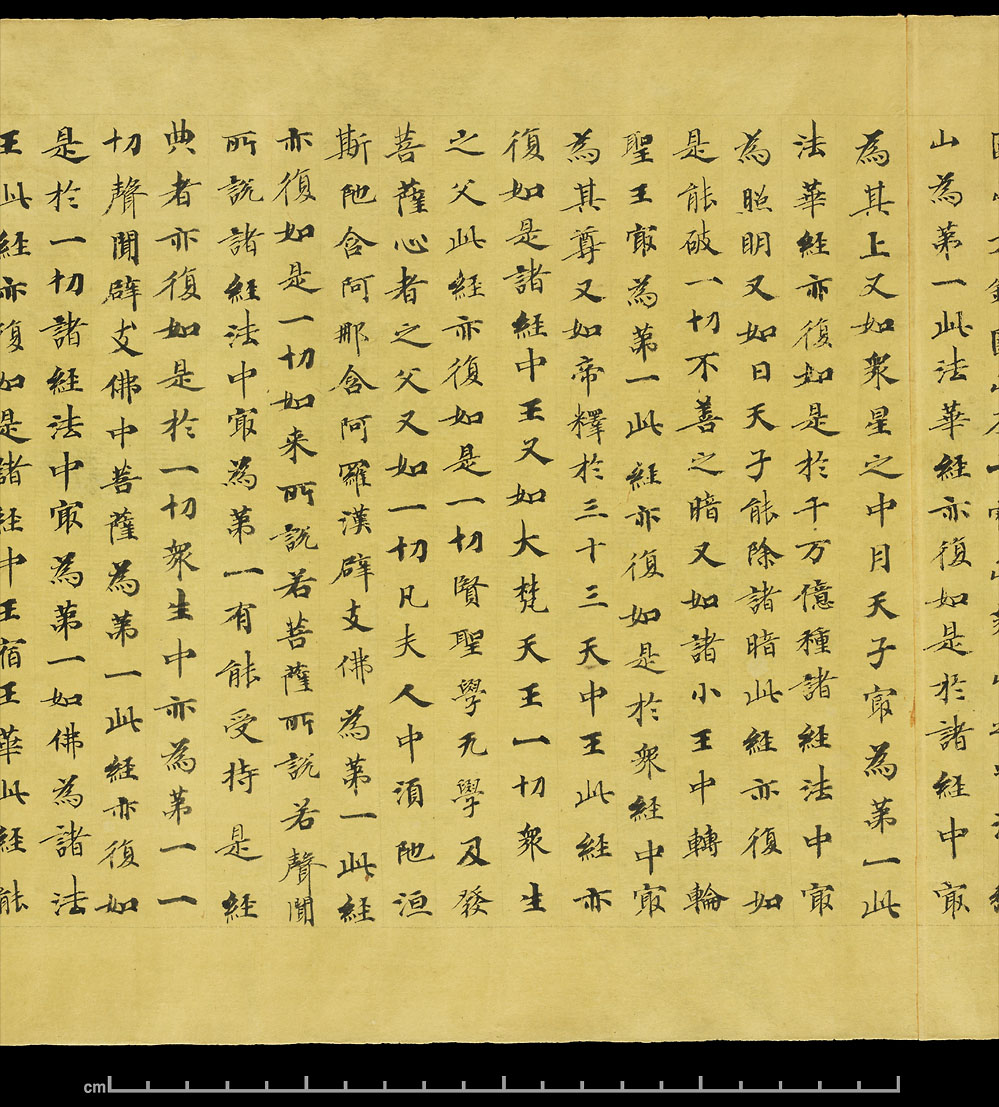 山為第一此法華經亦復如是於諸經中冣
為其上又如衆星之中月天子冣為第一此
法華經亦復如是於千万億種諸經法中冣
為照明又如日天子能除諸暗此經亦復如
是能破一切不善之暗又如諸小王中轉輪
聖王冣為第一此經亦復如是於衆經中冣
為其尊又如帝釋於三十三天中王此經亦
復如是諸經中王又如大梵天王一切衆生
之父此經亦復如是一切賢聖學无學及發
菩薩心者之父又如一切凡夫人中須陁洹
斯陁含阿那含阿羅漢辟支佛為第一此經
亦復如是一切如来所說若菩薩所說若聲聞
所說諸經法中冣為第一有能受持是經
典者亦復如是於一切衆生中亦為第一一
切聲聞辟支佛中菩薩為第一此經亦復如
是於一切諸經法中冣為第一如佛為諸法
王此經亦復如是諸經中王宿王華此經能
cm